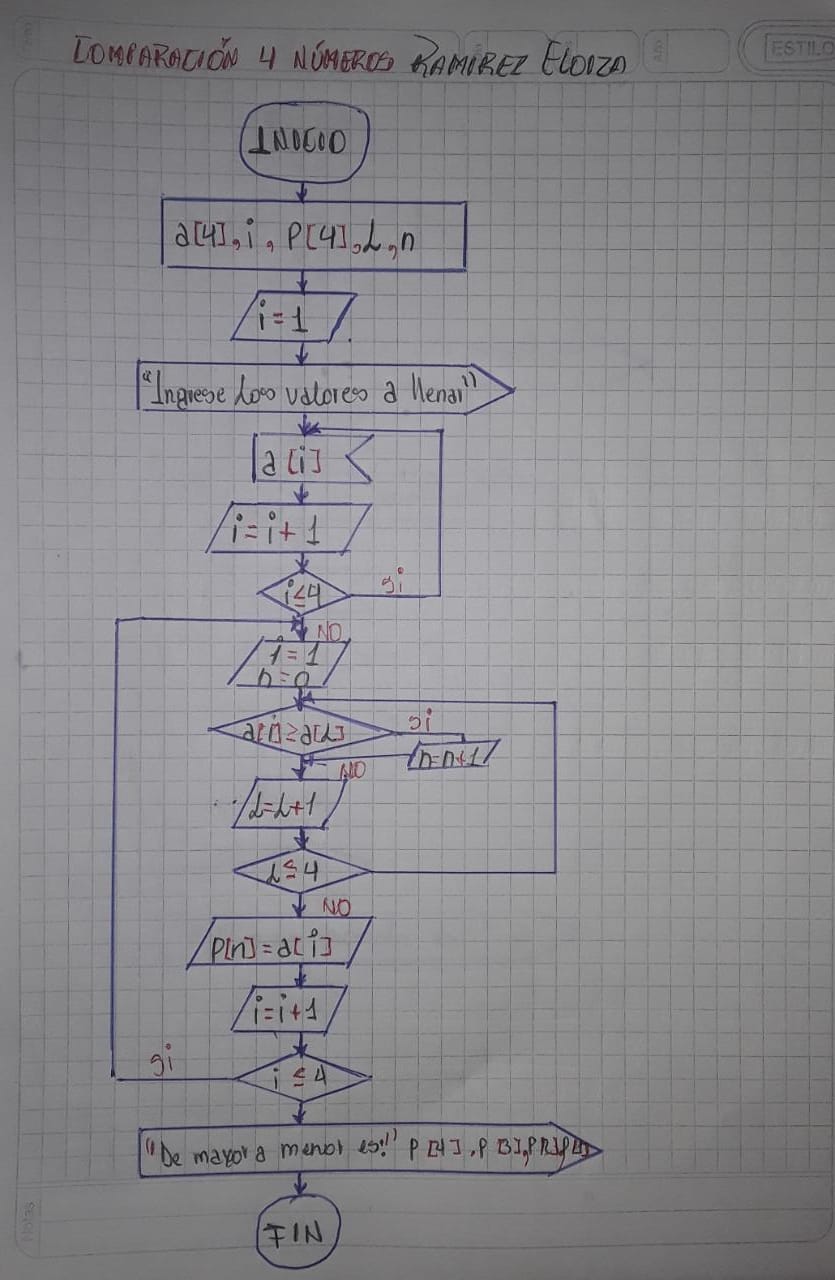 COMPARACIÓN 4 NÚMEROS RAMIREZ ELOIZA
ESTILO
INICIO
a[4], i, P[4], L, n
i=1
"Ingrese Los valores a llenar"
a[i]
i=i+1
i≤4
si
NO
i=1
n=0
a[i]≥a[L]
si
n=n+1
NO
L=L+1
L≤4
NO
P[n]=a[i]
i=i+1
si
i≤4
"De mayor a menor es:" P[4], P[3],
FIN
Notas